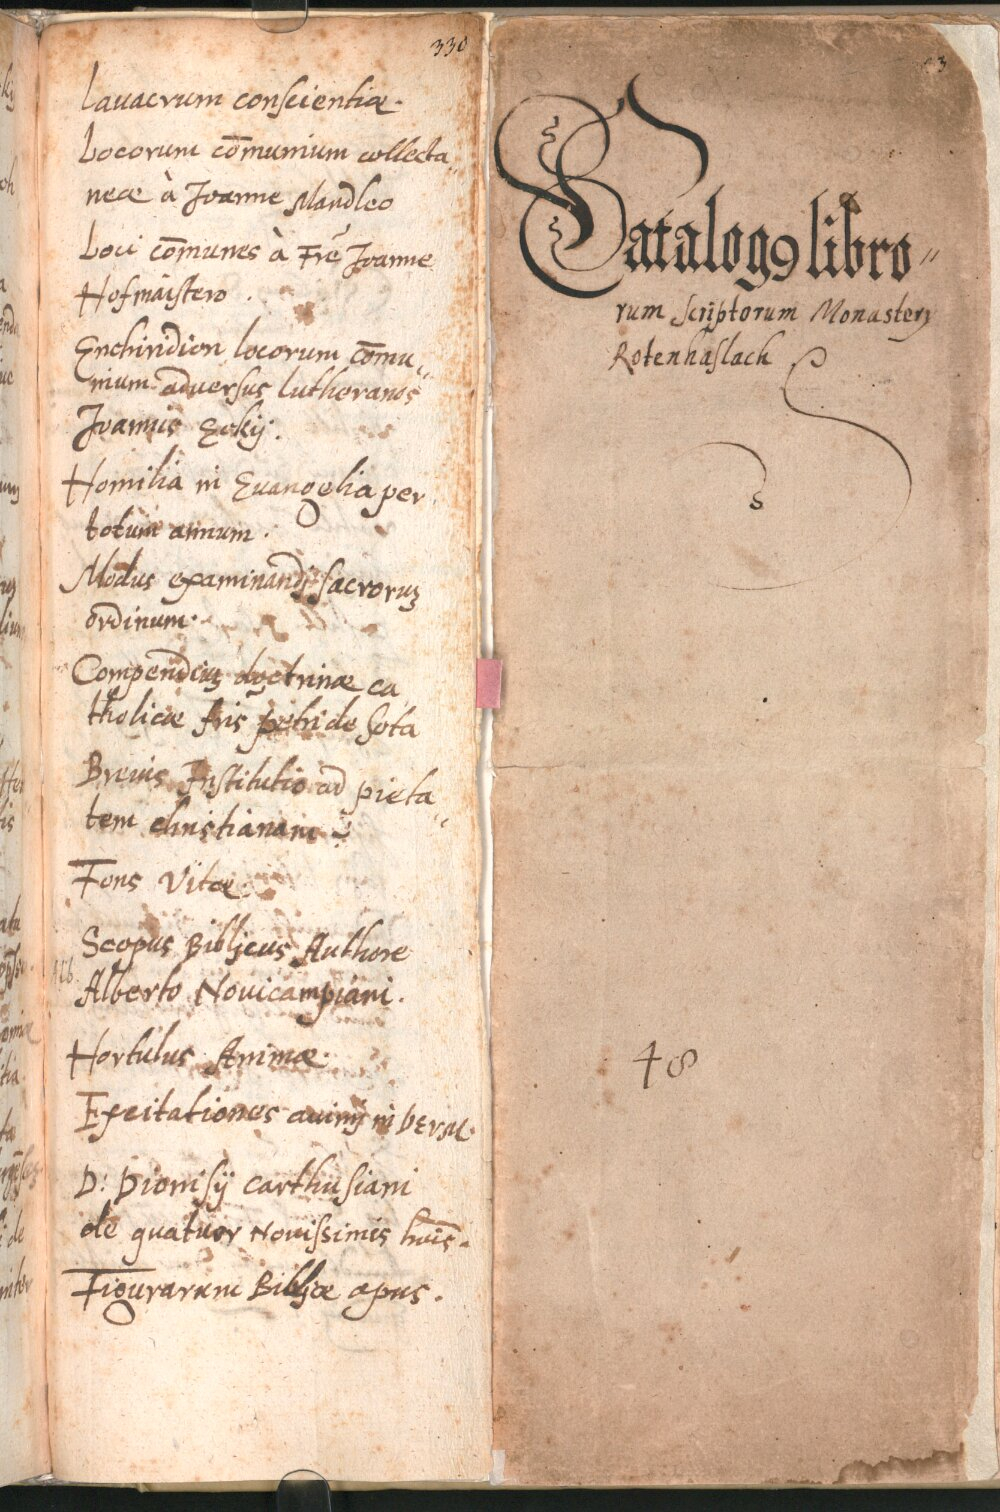 330
Lauacrum conscientiæ.
Locorum cōmunium collecta„
neæ à Joanne Mandleo
Loci cōmunes à Fr̃e Joanne
Hofmaistero.
Enchiridion locorum cōmu„
nium adversus lutheranos
Joannis Eckij.
Homilia in Euangelia per
totum annum.
Modus examinandi sacroruȝ
ordinum.
Compendiuȝ doctrinæ ca
tholicæ fris petri de Sota
Brevis Institutio ad pieta„
tem christianam
Fons Vitæ.
Scopus Biblicus Authore
Alberto Novicampiani.
Hortulus Animæ.
Exercitationes animi in
D: Dionisij Carthusiani
de quatuor Novissimis hōis.
Figurarum Bibliæ opus.
Catalogꝰ libro„
rum scriptorum Monasterij
Rotenhaslach
48